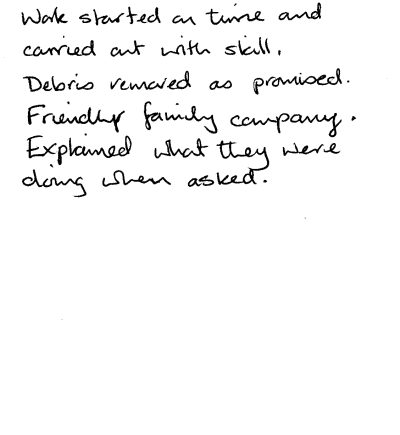 Work started on time and
carried out with skill.
Debris removed as promised.
Friendly family company.
Explained what they were
doing when asked.